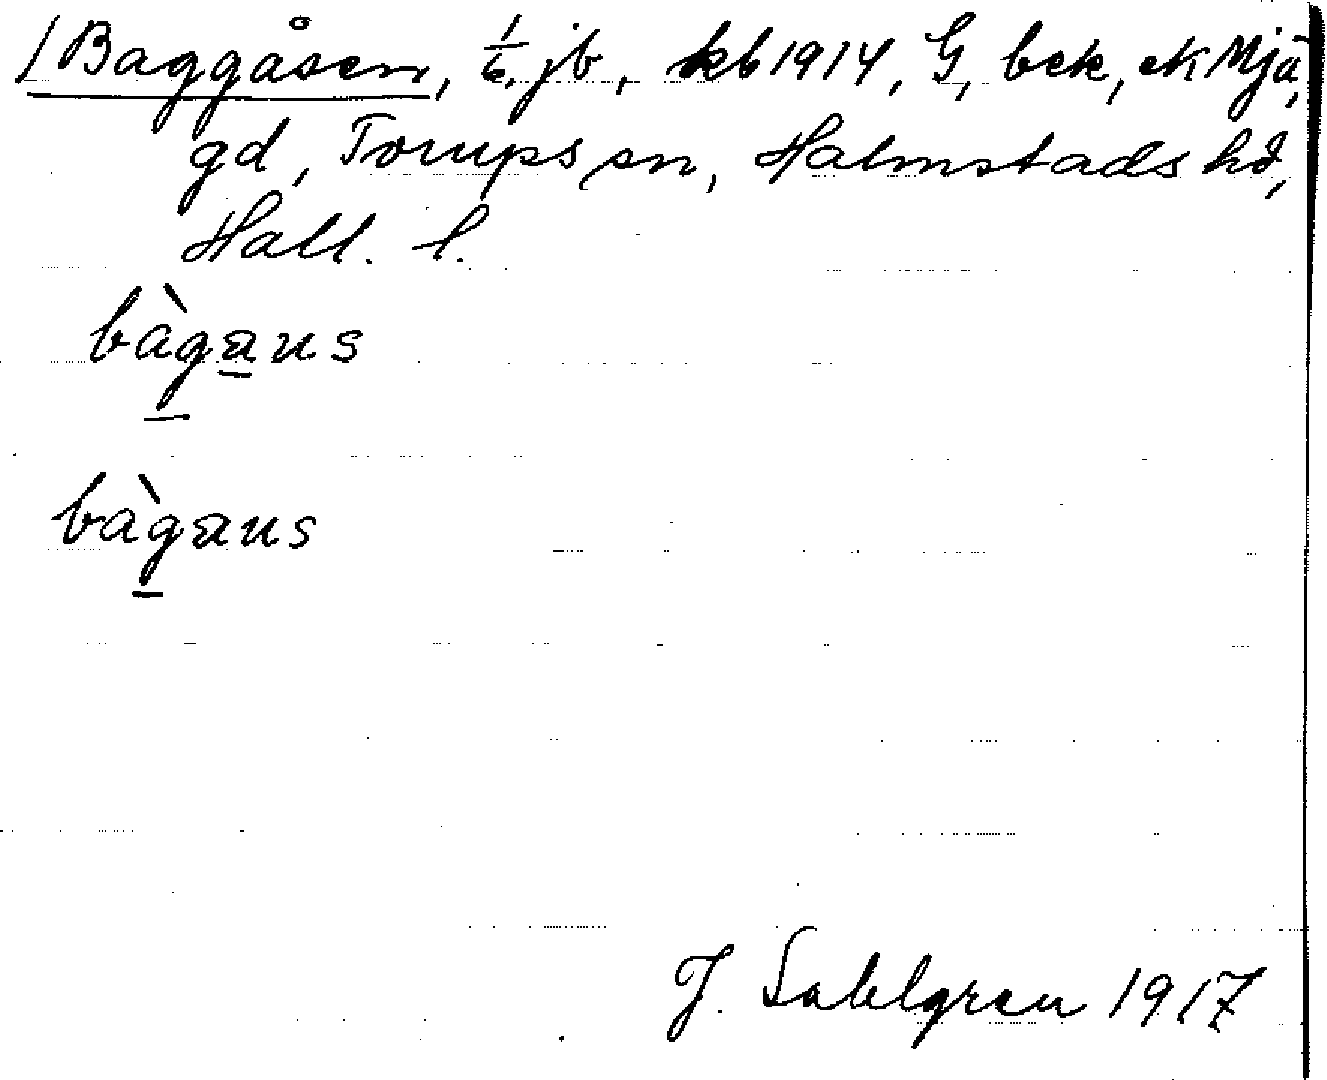 / Baggåsen, 1/6 jb, kb 1914, G, bek, ek Mjä,
gd, Torups sn, Halmstads hd,
Hall. l.
bàgans
bàgaus
J. Sahlgren 1917